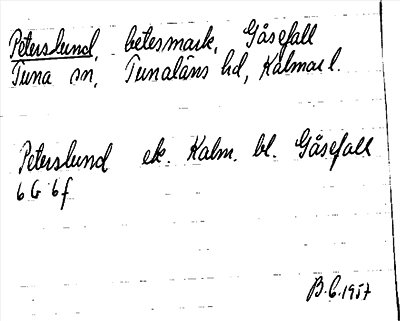 Peterslund, betesmark, Gåsefall
Tuna sn, Tunaläns hd, Kalmar l.
Peterslund ek. Kalm. bl. Gåsefall
6 G 6 f
B.C. 1957